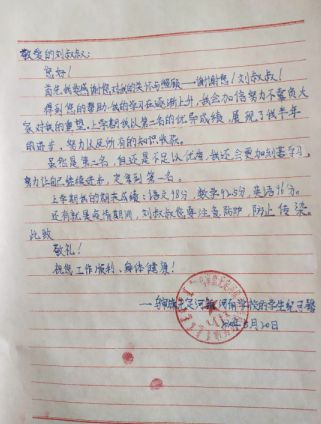 敬爱的刘叔叔:
您好!
首先我要感谢您对我的关怀与照顾——谢谢您!刘叔叔!
得到您的帮助,我的学习在逐渐上升,我会加倍努力不辜负大
家对我的重望。上学期我以第二名的优异成绩,展现了我半年
的进步,努力以及所有的知识收获。
虽然是第二名,但还是不足以优秀,我还会更加刻苦学习,
努力让自己继续进步,定拿到第一名。
上学期我的期末成绩:语文98分,数学92.5分,英语96分。
还有就是疫情期间,刘叔叔您要注意防护,防止传染。
此致
敬礼!
祝您工作顺利、身体健康!
学校的学生纪
3月20日